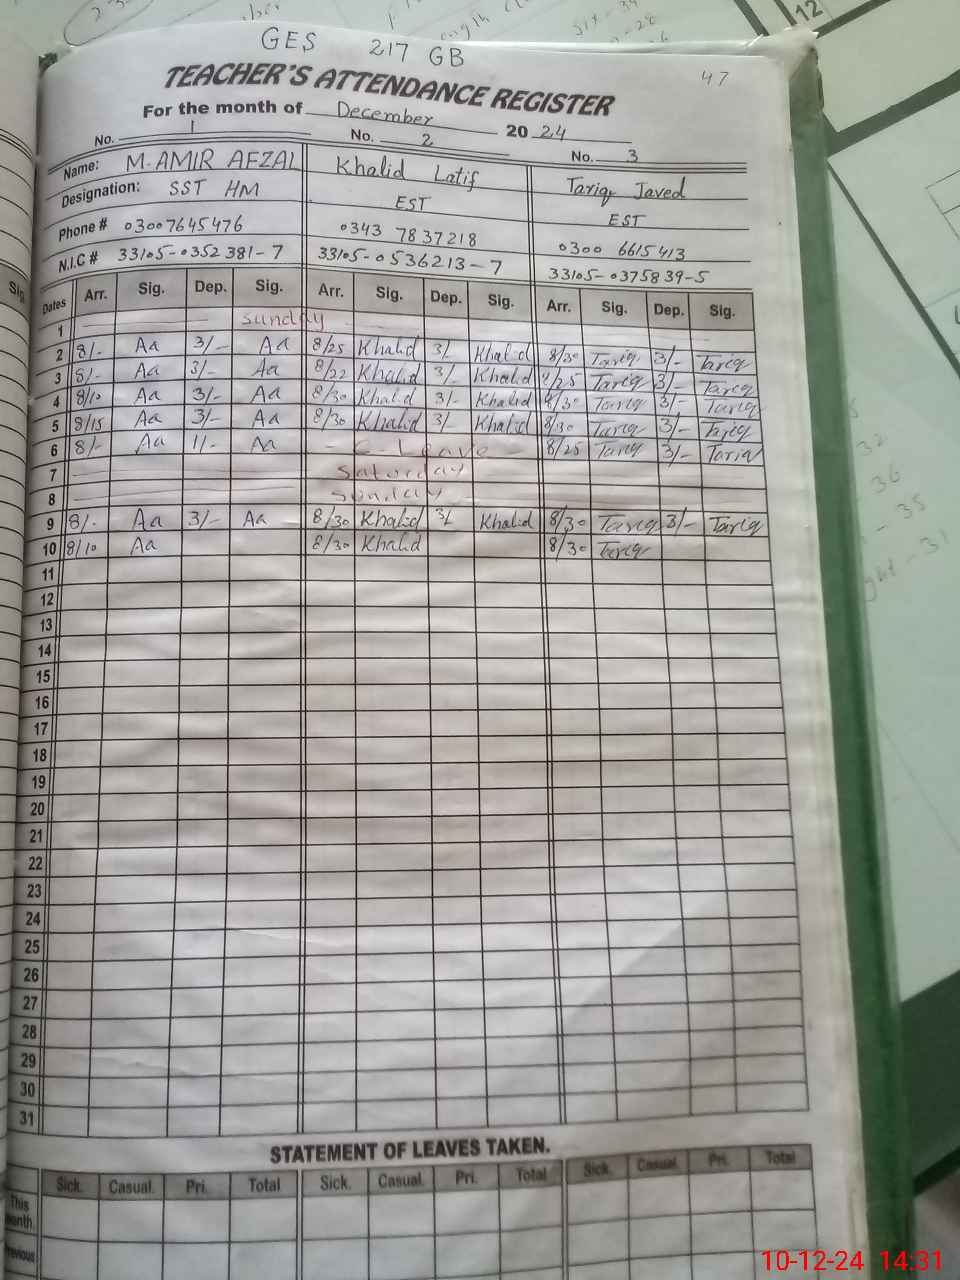 GES 217 GB
47
TEACHER'S ATTENDANCE REGISTER
For the month of December 2024
No. 1 No. 2 No. 3
Name: M. AMIR AFZAL Khalid Latif Tariq Javed
Designation: SST HM EST EST
Phone # 03007645476 0343 7837218 0300 6615413
N.I.C # 33105-0352381-7 33105-0536213-7 33105-0375839-5
Dates Arr. Sig. Dep. Sig. Arr. Sig. Dep. Sig. Arr. Sig. Dep. Sig.
1 Sunday
2 8/- Aa 3/- Aa 8/25 Khalid 3/- Khalid 8/30 Tariq 3/- Tariq
3 8/- Aa 3/- Aa 8/22 Khalid 3/- Khalid 8/25 Tariq 3/- Tariq
4 8/10 Aa 3/- Aa 8/30 Khalid 3/- Khalid 8/30 Tariq 3/- Tariq
5 8/15 Aa 3/- Aa 8/30 Khalid 3/- Khalid 8/30 Tariq 3/- Tariq
6 8/- Aa 1/- Aa - C. Leave - 8/25 Tariq 3/- Tariq
7 Saturday
8 Sunday
9 8/- Aa 3/- Aa 8/30 Khalid 3/- Khalid 8/30 Tariq 3/- Tariq
10 8/10 Aa 8/30 Khalid 8/30 Tariq
11
12
13
14
15
16
17
18
19
20
21
22
23
24
25
26
27
28
29
30
31
STATEMENT OF LEAVES TAKEN.
Sick. Casual. Pri. Total Sick. Casual. Pri. Total Sick. Casual. Pri. Total
This
month.
Previous
12
Sig
10-12-24 14:31